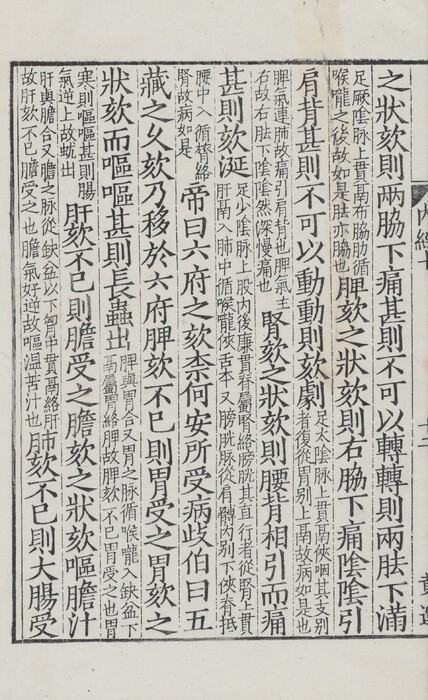 之狀欬則兩脇下痛甚則不可以轉轉則兩胠下滿
足厥陰脉上貫鬲布脇肋循
喉嚨之後故如是胠亦脇也
脾欬之狀欬則右脇下痛陰陰引
肩背甚則不可以動動則欬劇
足太陰脉上貫鬲俠咽其支别
者復從胃别上鬲故病如是也
脾氣連肺故痛引肩背也脾氣主
右故右胠下陰陰然深慢痛也
腎欬之狀欬則腰背相引而痛
甚則欬涎
足少陰脉上股内後廉貫脊屬腎絡膀胱其直行者從腎上貫
肝鬲入肺中循喉嚨俠舌本又膀胱脉從肩髆内别下俠脊抵
腰中入循膂絡
腎故病如是
帝曰六府之欬柰何安所受病歧伯曰五
藏之久欬乃移於六府脾欬不已則胃受之胃欬之
狀欬而嘔嘔甚則長蟲出
脾與胃合又胃之脉循喉嚨入缺盆下
鬲屬胃絡脾故脾欬不已胃受之也胃
寒則嘔嘔甚則腸
氣逆上故蚘出
肝欬不已則膽受之膽欬之狀欬嘔膽汁
肝與膽合又膽之脉從缺盆以下胷中貫鬲絡肝
故肝欬不已膽受之也膽氣好逆故嘔温苦汁也
肺欬不已則大腸受